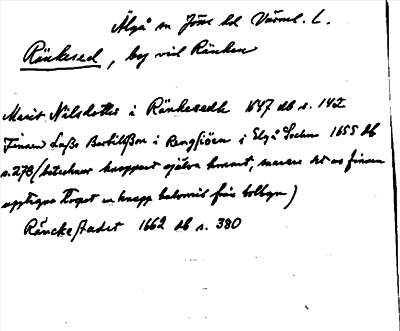 Älgå sn Jösse hd Värml. L.
Ränkesed, by vid Ränken
Marit Nilsdotter i Ränkesedh 1647 db s. 142
Finnen Lasse Bertilsson i Rengsiöen i Elgå Sochn 1655 db
s. 278 (betecknar knappast själva hemmet, snarare det av finnen
upptagna torpet en knapp halvmil från bolbyn)
Ränckestadet 1662 db s. 380